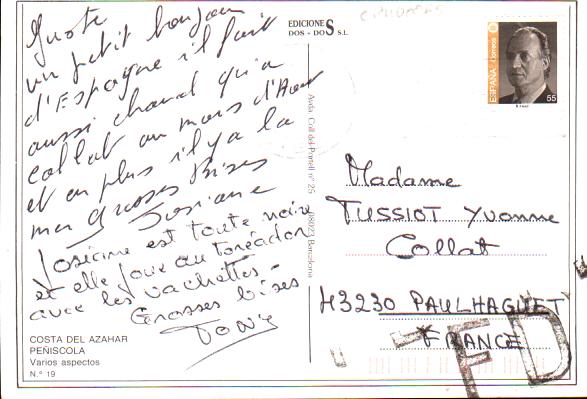 Juste
un petit bonjour
d'Espagne il fait
aussi chaud qu'a
Collat au mois d'Aout
et en plus il y a la
mer Grosses Bises
Josiane
Josiane est toute noire
et elle joue au toréador
avec les vachettes.
Grosses bises
TONY
COSTA DEL AZAHAR
PEÑISCOLA
Varios aspectos
N.º 19
EDICIONES
DOS - DOS S.L.
Avda. Coll del Portell nº 25 08023 Barcelona
ESPAÑA Correos
55
Madame
TUSSIOT Yvonne
Collat
43230 PAULHAGUET
FRANCE
FD